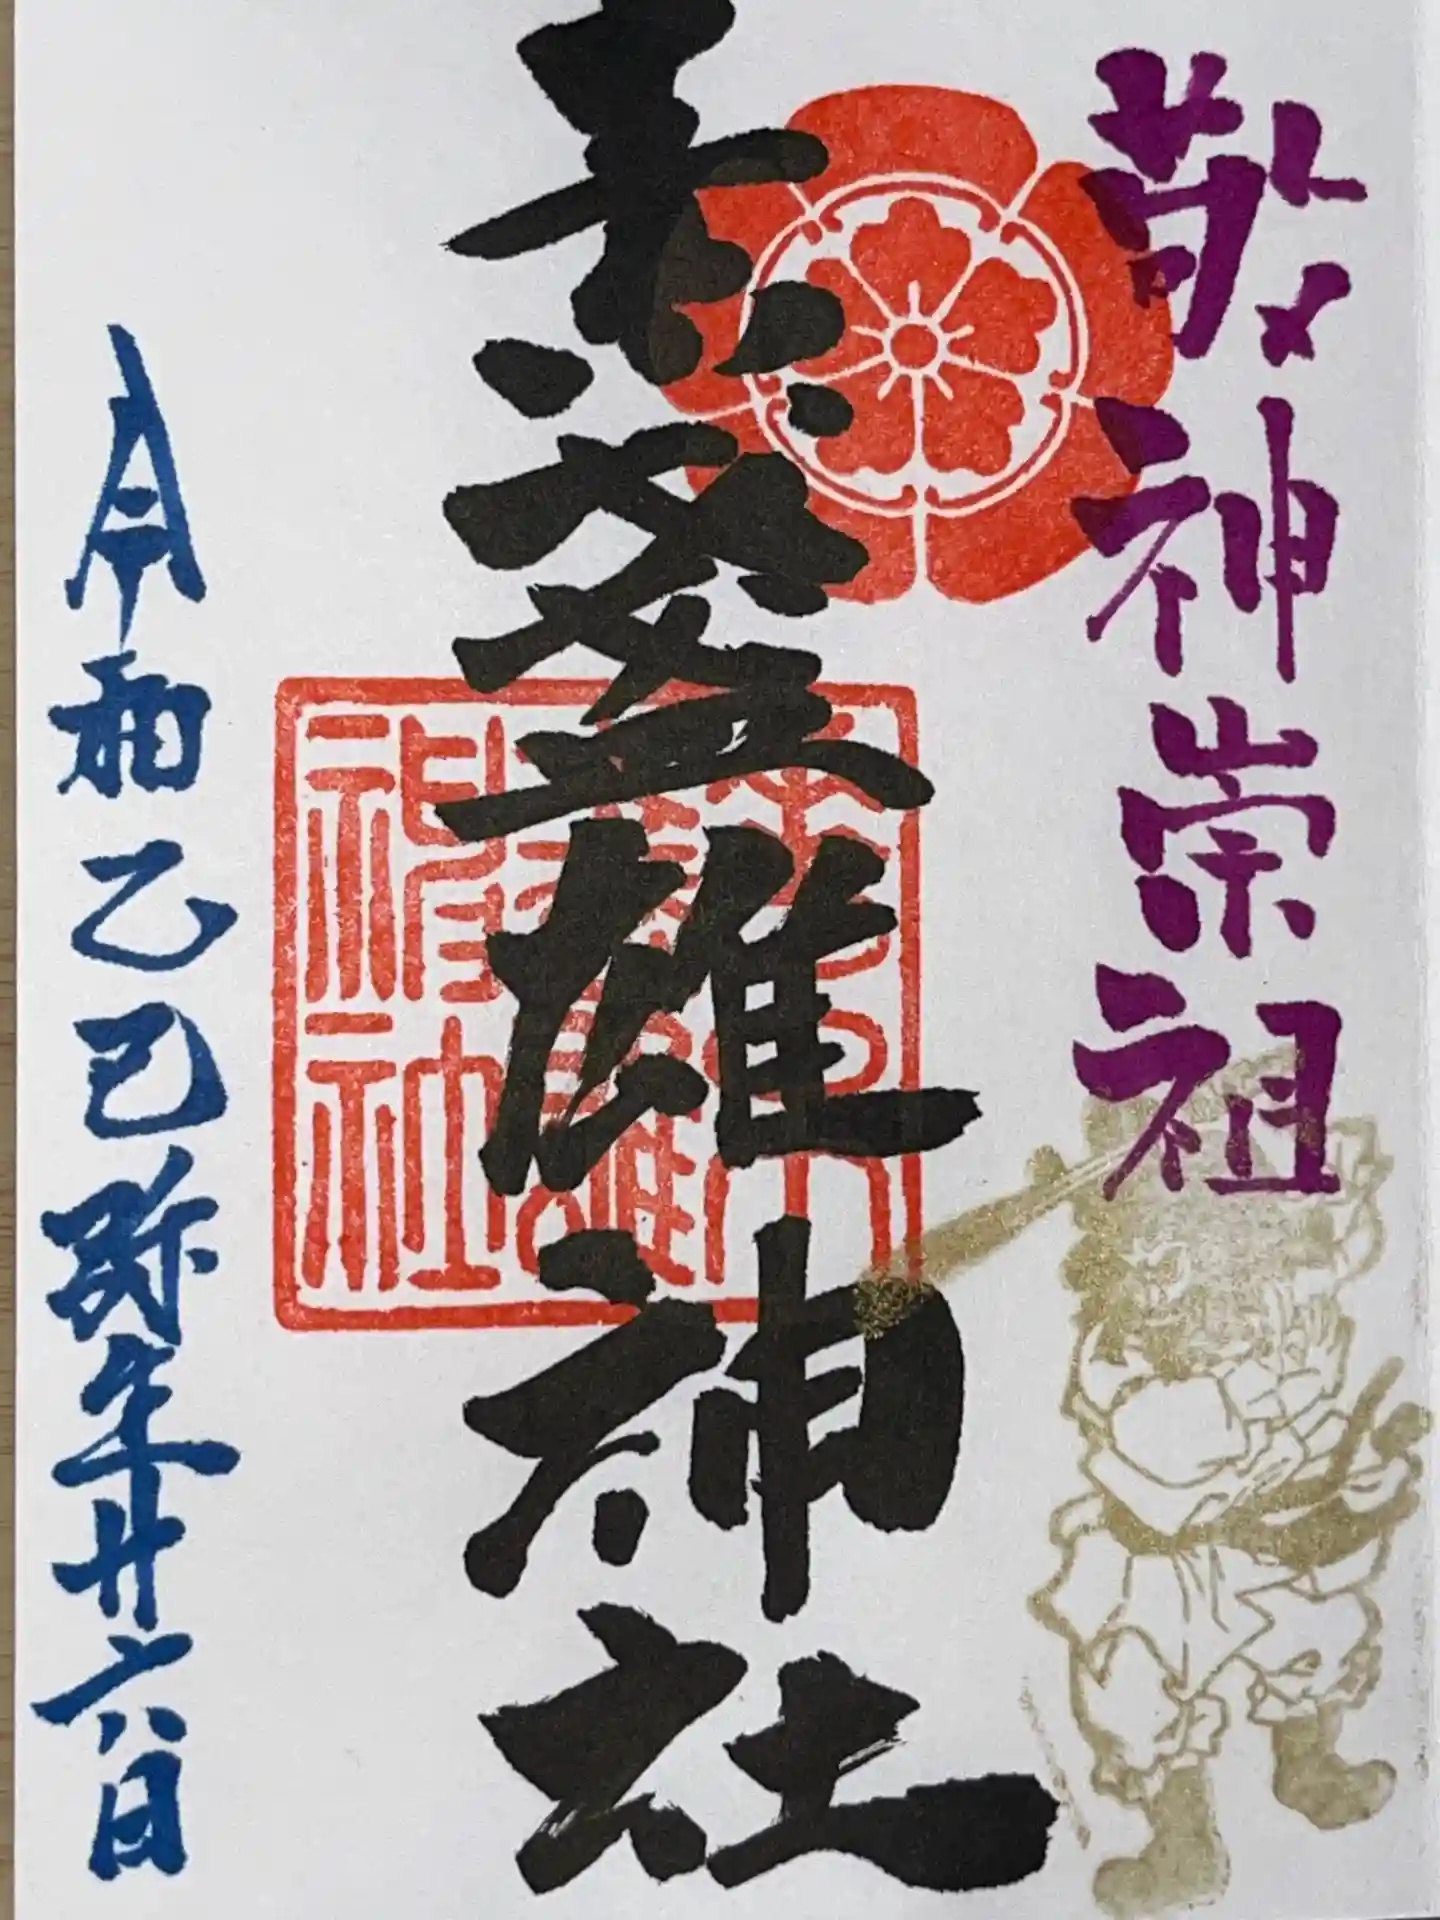 敬神崇祖
素盞雄神社
神社
令和乙巳弥生廿六日